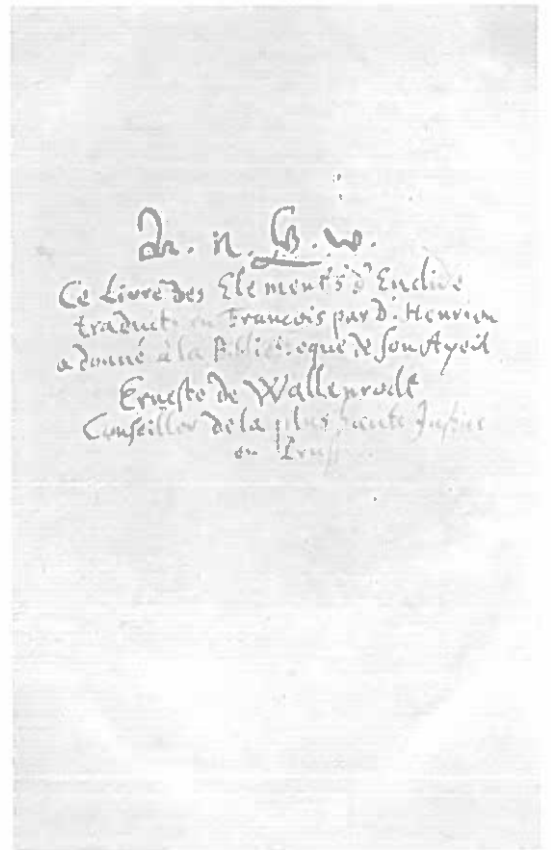 n. B. w.
Ce Livre des Elements d'Euclide
traduit en Francois par D. Henrion
a donné à la Biblioteque de son Ayeil
Erneste de Wallenrodt
Conseiller de la plus haute Justice
en Pruss